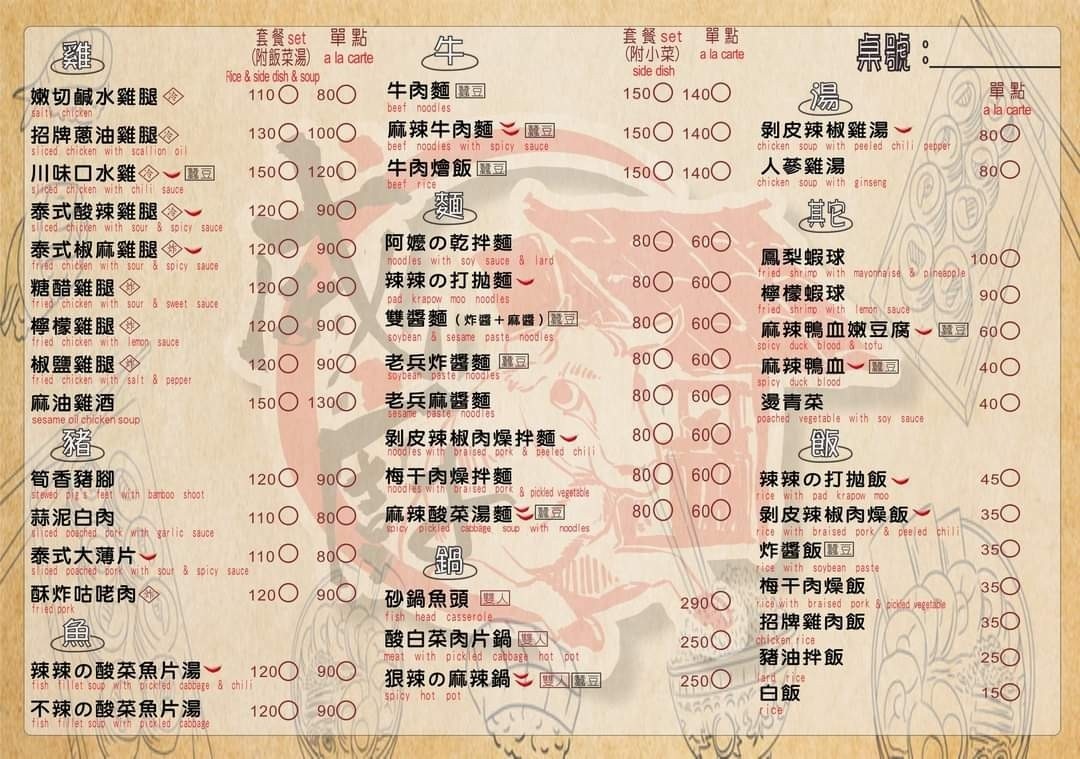 雞
套餐 set
(附飯菜湯)
Rice & side dish & soup
單點
a la carte
嫩切鹹水雞腿 冷 110 80
salty chicken
招牌蔥油雞腿 冷 130 100
sliced chicken with scallion oil
川味口水雞 冷 蠶豆 150 120
sliced chicken with chili sauce
泰式酸辣雞腿 冷 120 90
sliced chicken with sour & spicy sauce
泰式椒麻雞腿 炸 120 90
fried chicken with sour & spicy sauce
糖醋雞腿 炸 120 90
fried chicken with sour & sweet sauce
檸檬雞腿 炸 120 90
fried chicken with lemon sauce
椒鹽雞腿 炸 120 90
fried chicken with salt & pepper
麻油雞酒 150 130
sesame oil chicken soup
豬
筍香豬腳 120 90
stewed pig's feet with bamboo shoot
蒜泥白肉 110 80
sliced poached pork with garlic sauce
泰式大薄片 110 80
sliced poached pork with sour & spicy sauce
酥炸咕咾肉 炸 120 90
fried pork
魚
辣辣の酸菜魚片湯 120 90
fish fillet soup with pickled cabbage & chili
不辣の酸菜魚片湯 120 90
fish fillet soup with pickled cabbage
牛
套餐 set
(附小菜)
side dish
單點
a la carte
牛肉麵 蠶豆 150 140
beef noodles
麻辣牛肉麵 蠶豆 150 140
beef noodles with spicy sauce
牛肉燴飯 蠶豆 150 140
beef rice
麵
阿嬤の乾拌麵 80 60
noodles with soy sauce & lard
辣辣の打拋麵 80 60
pad krapow moo noodles
雙醬麵 (炸醬+麻醬) 蠶豆 80 60
soybean & sesame paste noodles
老兵炸醬麵 蠶豆 80 60
soybean paste noodles
老兵麻醬麵 80 60
sesame paste noodles
剝皮辣椒肉燥拌麵 80 60
noodles with braised pork & peeled chili
梅干肉燥拌麵 80 60
noodles with braised pork & pickled vegetable
麻辣酸菜湯麵 蠶豆 80 60
spicy pickled cabbage soup with noodles
鍋
砂鍋魚頭 雙人 290
fish head casserole
酸白菜肉片鍋 雙人 250
meat with pickled cabbage hot pot
狠辣の麻辣鍋 雙人 蠶豆 250
spicy hot pot
桌號:
湯
單點
a la carte
剝皮辣椒雞湯 80
chicken soup with peeled chili pepper
人蔘雞湯 80
chicken soup with ginseng
其它
鳳梨蝦球 100
fried shrimp with mayonnaise & pineapple
檸檬蝦球 90
fried shrimp with lemon sauce
麻辣鴨血嫩豆腐 蠶豆 60
spicy duck blood & tofu
麻辣鴨血 蠶豆 40
spicy duck blood
燙青菜 40
poached vegetable with soy sauce
飯
辣辣の打拋飯 45
rice with pad krapow moo
剝皮辣椒肉燥飯 35
rice with braised pork & peeled chili
炸醬飯 蠶豆 35
rice with soybean paste
梅干肉燥飯 35
rice with braised pork & pickled vegetable
招牌雞肉飯 35
chicken rice
豬油拌飯 25
lard rice
白飯 15
rice